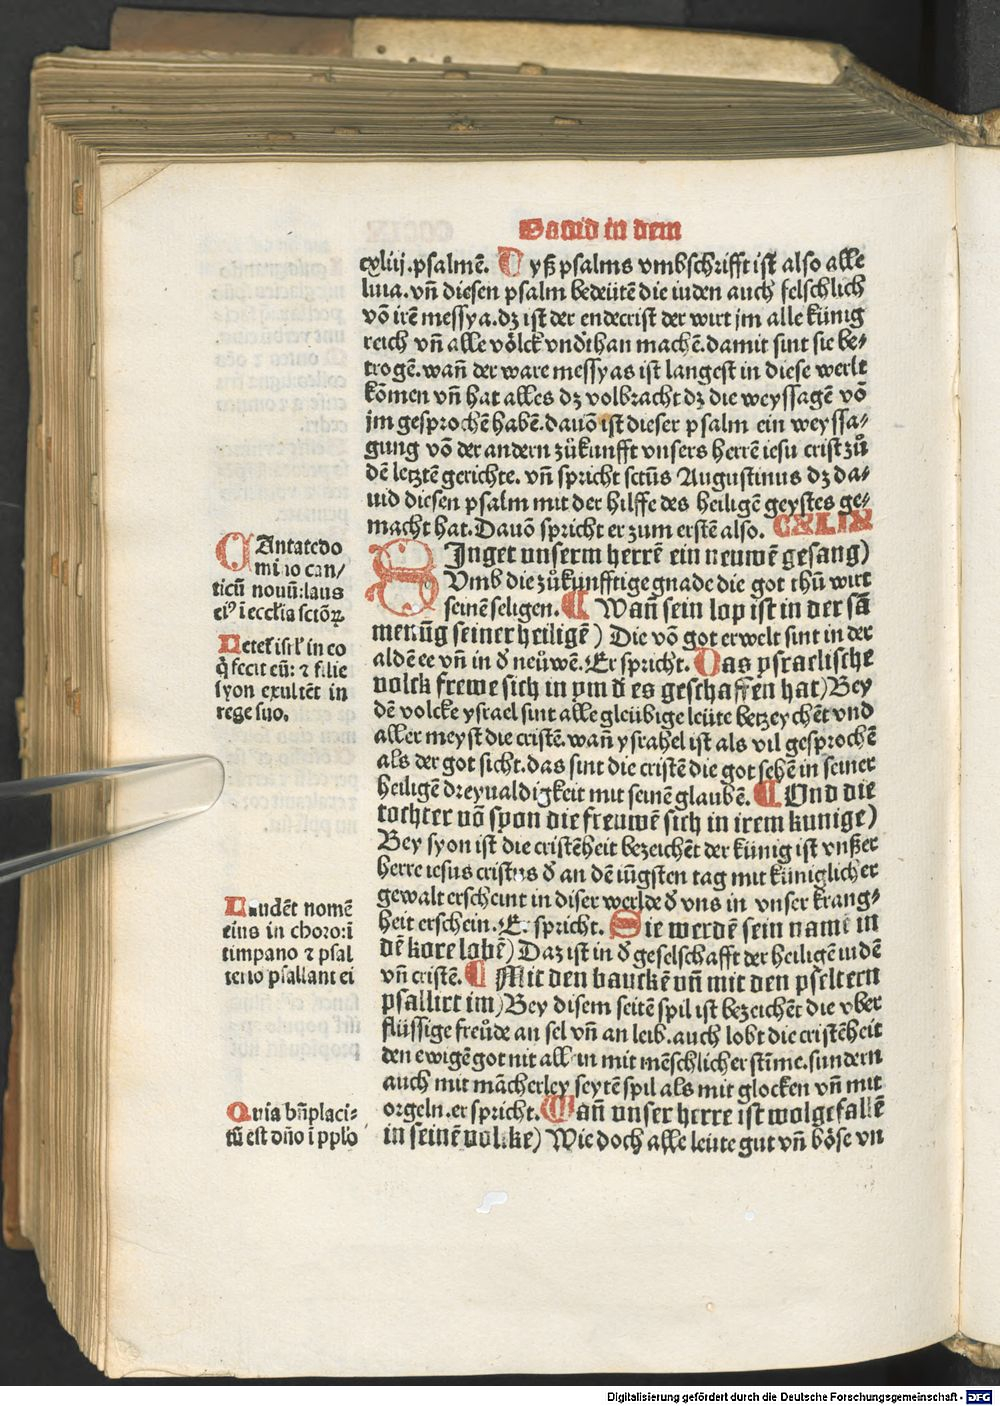 Dauid in dem
cxliij.psalmē. Dyß psalms vmbschrifft ist also alle
luia. vn̄ diesen psalm bedeütē die iuden auch felschlich
vō irē messya. dz ist der endecrist der wirt jm alle künig
reich vn̄ alle völck vndthan machē. damit sint sie be-
trogē. wan̄ der ware messyas ist langest in diese werlt
kōmen vn̄ hat alles dz volbracht dz die weyssagē vō
jm gesprochē habē. dauō ist dieser psalm ein weyssa-
gung vō der andern zůkunfft vnsers herrē iesu crist zů
dē letztē gerichte. vn̄ spricht sctūs Augustinus dz da-
uid diesen psalm mit der hilffe des heiligē geystes ge-
macht hat. Dauō spricht er zum erstē also. CXLIX
SInget vnserm herrē ein neuwē gesang)
Vmb die zůkunfftige gnade die got thū wirt
seinē seligen. Wan̄ sein lop ist in der sā
menūg seiner heiligē) Die vō got erwelt sint in der
aldē ee vn̄ in d̄ neůwē. Er spricht. Das ysraelische
volck frewe sich in ym d̄ es geschaffen hat) Bey
dē volcke ysrael sint alle gleübige leüte betzeychēt vnd
aller meyst die cristē. wan̄ ysrahel ist als vil gesprochē
als der got sicht. das sint die cristē die got sehē in seiner
heiligē dreyualdigkeit mit seinē glaubē. Vnd die
tochter vō syon die freuwē sich in irem kunige)
Bey syon ist die cristēheit bezeichēt der künig ist vnßer
herre iesus cristus d̄ an dē iügsten tag mit küniglicher
gewalt erscheint in diser werlde d̄ vns in vnser krang-
heit erschein. Er spricht. Sie werdē sein namē in
dē kore lobē) Daz ist in d̄ geselschafft der heiligē iudē
vn̄ cristē. Mit den bauckē vn̄ mit den pseltern
psallirt im) Bey disem seitē spil ist bezeichēt die vber
flüssige freůde an sel vn̄ an leib. auch lobt die cristēheit
den ewigē got nit allein mit mēschlicher stīme. sundern
auch mit mācherley seytē spil als mit glocken vn̄ mit
orgeln. er spricht. Wan̄ vnser herre ist wolgefallē
in seinē volcke) Wie doch alle leüte gut vn̄ böse vn
CAntatedo
mino can/
ticū nouū: laus
eiꝰ ī ecclīa sctōꝝ.
Letet̄ isrl̄ in eo
q̄ fecit eū: ⁊ filie
syon exultēt in
rege suo.
Laudēt nomē
eius in choro: ī
timpano ⁊ psal
terio psallant ei
Quia bn̄placi-
tū est dn̄o ī ppl̄o
Digitalisierung gefördert durch die Deutsche Forschungsgemeinschaft - DFG